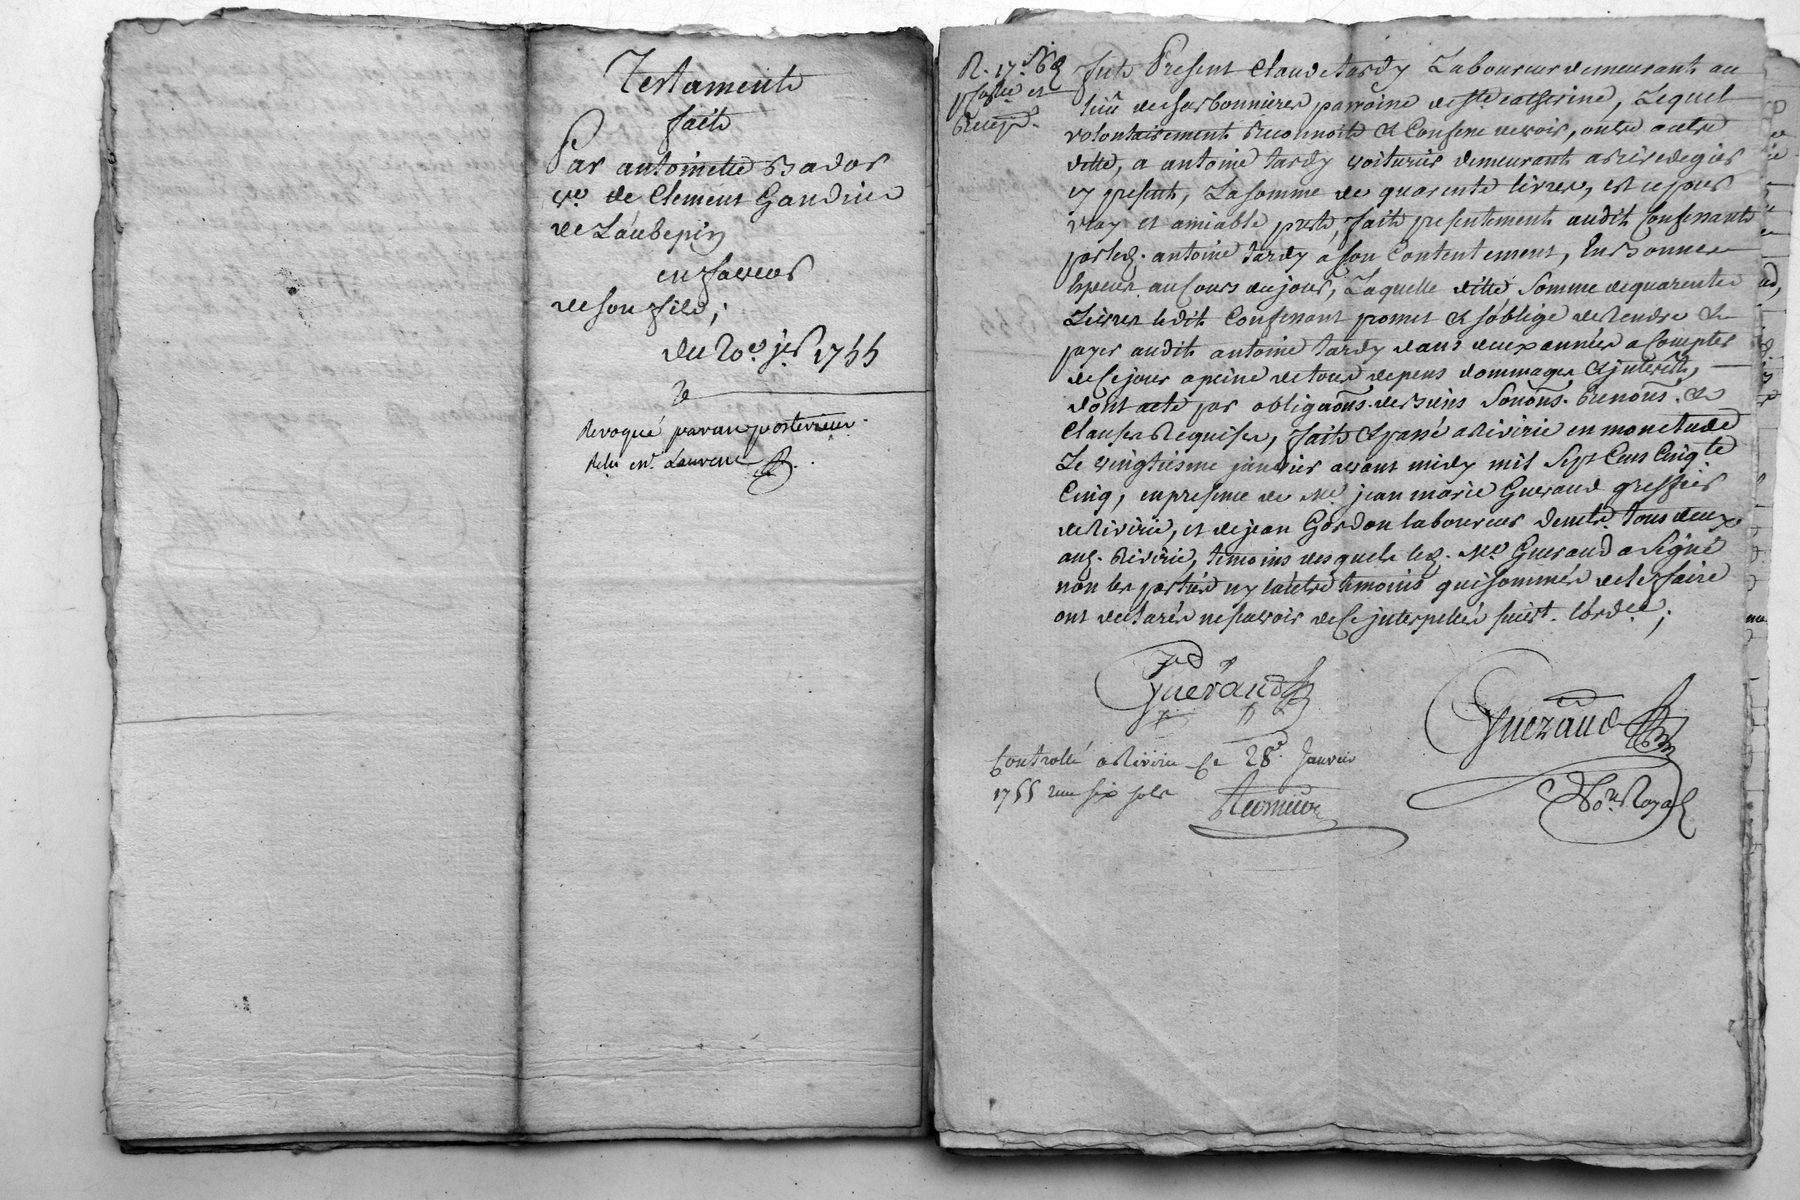 Testament
fait
Par antoinette Bador
ve. de Clement Gaudin
de Laubepin
en faveur
de son fils;
du 20e. jer. 1755
Revoqué par un posterieur.
Fut Present Claude tardy Laboureur demeurant au
lieu des parroisse de ste catherine, Lequel
volontairement reconnoit & Confesse devoir, outre autre
dette, a antoine tardy voiturier demeurant a rive de gier
cy present, La somme de quarente livres, et ce pour
vray et amiable prest, fait presentement audit Confessant
par led. antoine tardy a son Contentement, En bonnes
Especes au Cours du jour, Laquelle ditte Somme de quarente
Livres ledit Confessant promet & s'oblige de rendre &
payer audit antoine tardy dans deux années a Compter
de Ce jour a peine de tous depens dommages & interets,
dont acte par obligaõns. de biens Soñons. Renoñs. &
Clauses Requises, fait & passé a Riverie en mon etude
Le vingtieme janvier avant midy mil Sept Cens Cinq te
Cinq, en presence de Me. jean marie Gueraud greffier
de Riverie, et de jean Gordon laboureur demt. tous deux
aud. Riverie, temoins desquels led. Me. Gueraud a Signé
non les parties ny lautre temoins qui sommés de le faire
ont declarés ne savoir de Ce interpellés suivt. lord.ce;
Gueraud
Gueraud
Nore. Royal
Controllé a Riverie Ce 28e. Janvier
1755 reçu six sols